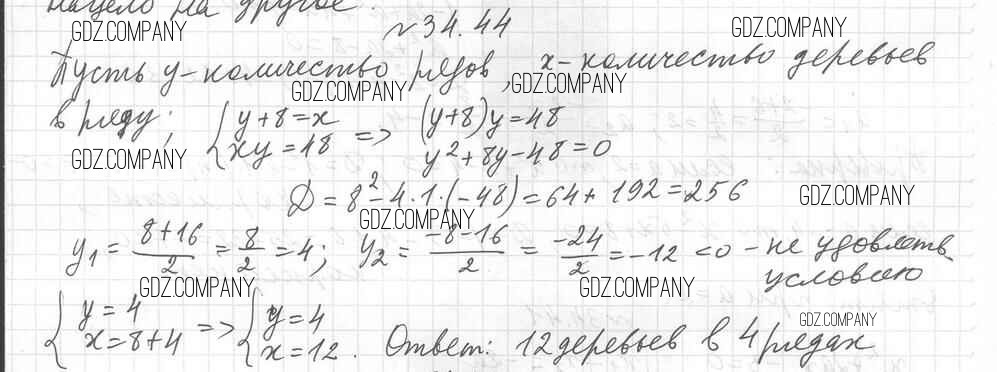 нацело на другое.
№ 34.44
GDZ.COMPANY GDZ.COMPANY
Пусть y – количество рядов, x – количество деревьев
GDZ.COMPANY GDZ.COMPANY
в ряду; { y + 8 = x => (y+8)y = 48
xy = 48 y² + 8y - 48 = 0
GDZ.COMPANY
D = 8² - 4·1·(-48) = 64 + 192 = 256
GDZ.COMPANY GDZ.COMPANY
y₁ = 8+16/2 = 8/2 = 4; y₂ = -8-16/2 = -24/2 = -12 < 0 – не удовлетв.
условию
GDZ.COMPANY GDZ.COMPANY
{ y = 4 => { y = 4
x = 8+4 x = 12. Ответ: 12 деревьев в 4 рядах
GDZ.COMPANY